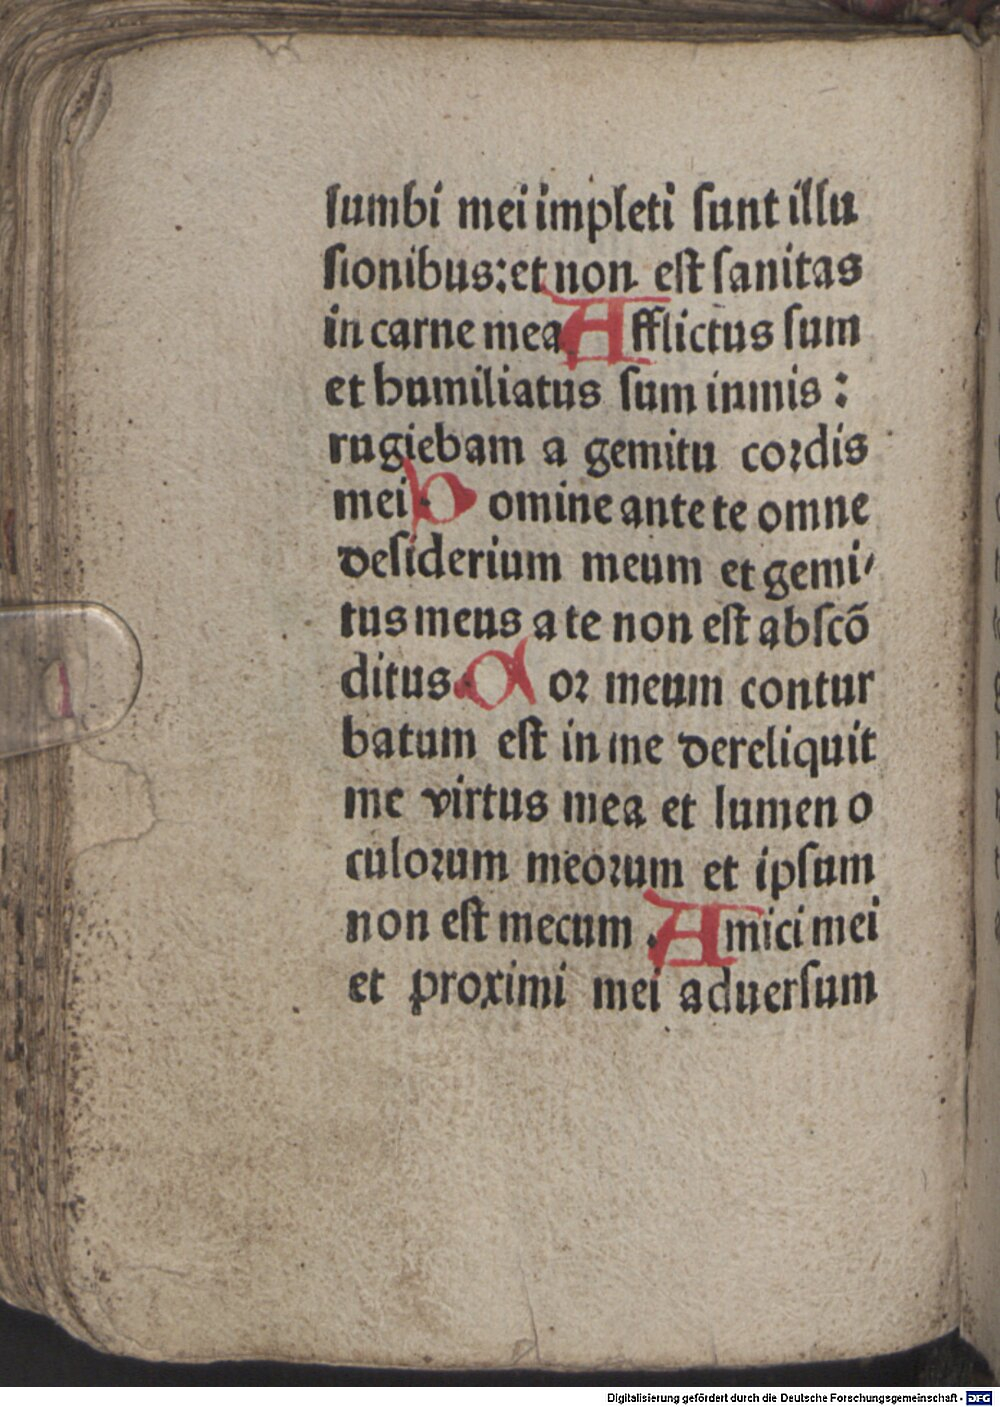 lumbi mei impleti ſunt illu
ſionibus: et non eſt ſanitas
in carne mea. Afflictus ſum
et humiliatus ſum inmis :
rugiebam a gemitu coꝛdis
mei. Domine ante te omne
deſiderium meum et gemi⸗
tus meus a te non eſt abſcō
ditus. Coꝛ meum contur
batum eſt in me dereliquit
me virtus mea et lumen o
culoꝛum meoꝛum et ipſum
non eſt mecum . Amici mei
et proximi mei aduerſum
Digitalisierung gefördert durch die Deutsche Forschungsgemeinschaft - DFG